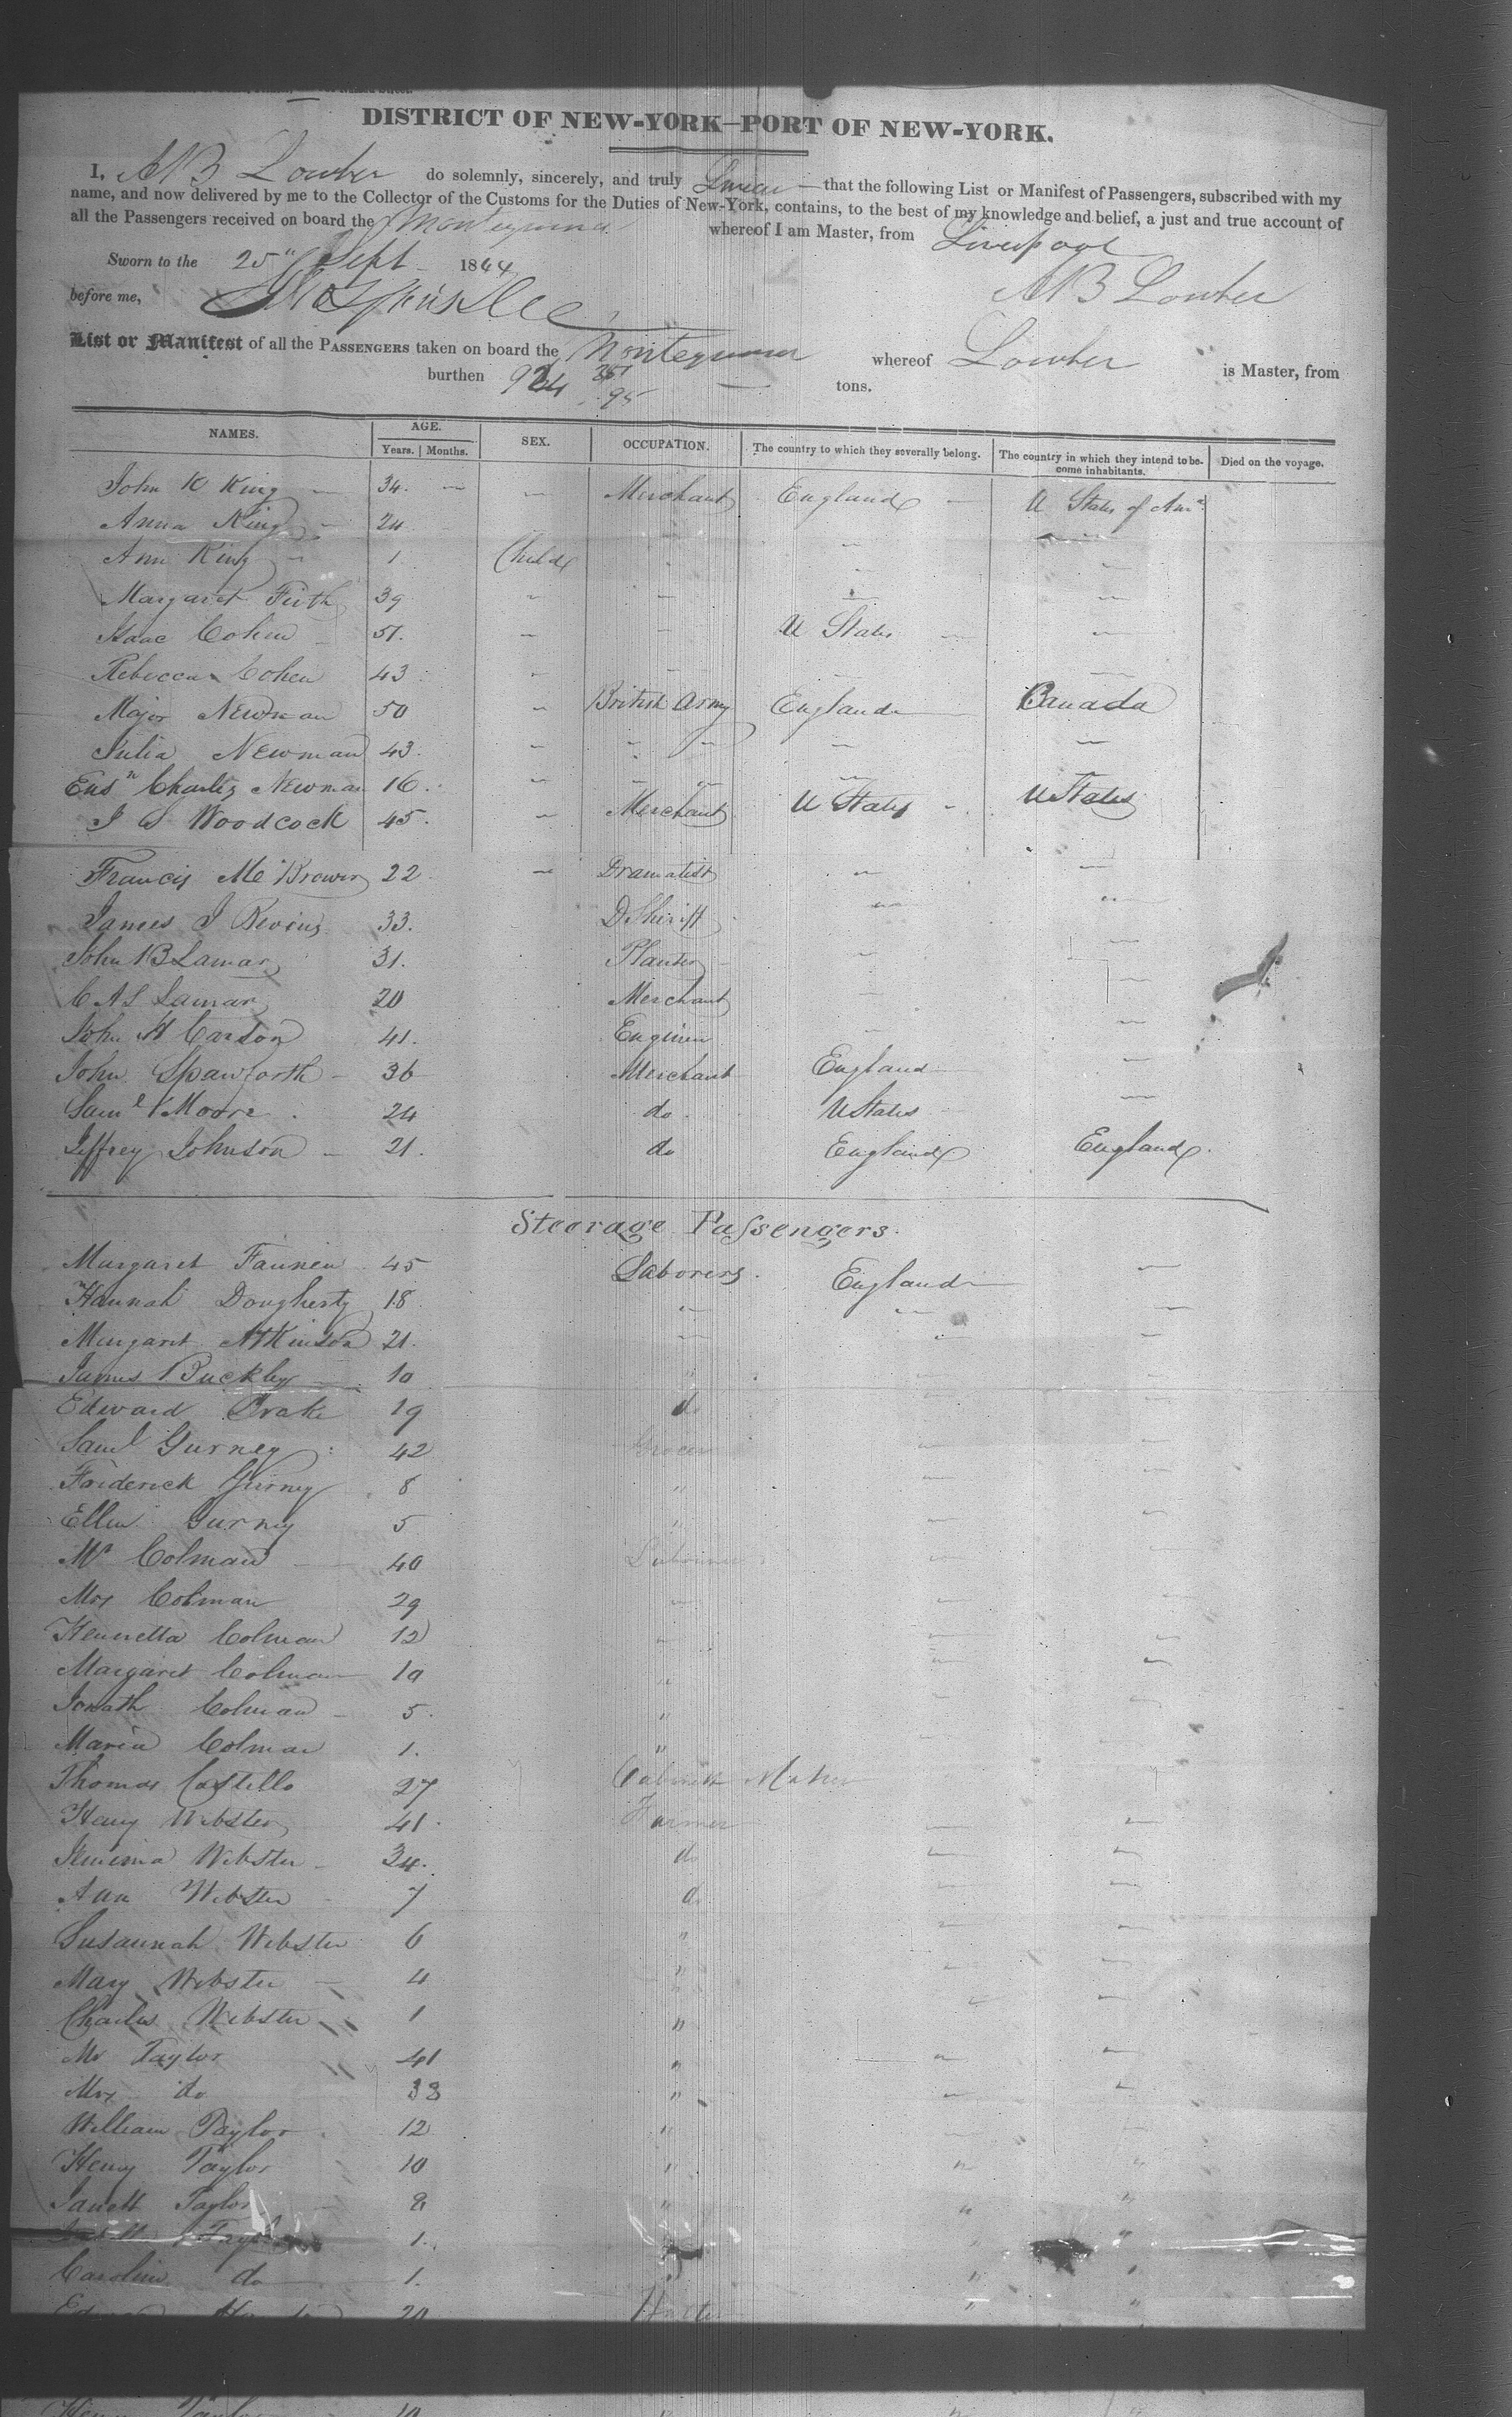 DISTRICT OF NEW-YORK—PORT OF NEW-YORK.
I, A B Lowber do solemnly, sincerely, and truly Swear — that the following List or Manifest of Passengers, subscribed with my
name, and now delivered by me to the Collector of the Customs for the Duties of New-York, contains, to the best of my knowledge and belief, a just and true account of
all the Passengers received on board the Montezuma whereof I am Master, from Liverpool
Sworn to the 25" Sept 1844
before me, A B Lowber
List or Manifest of all the PASSENGERS taken on board the Montezuma whereof Lowber is Master, from
burthen 924 tons.
95
NAMES. AGE. SEX. OCCUPATION. The country to which they severally belong. The country in which they intend to become inhabitants. Died on the voyage.
Years. | Months.
John K King 34 Merchant England U States of Ama
Anna King 24
Ann King 1 Child
Margaret Firth 39
Isaac Cohen 51 U States
Rebecca Cohen 43
Major Newman 50 British Army England Canada
Julia Newman 43
Ensn Charles Newman 16
J S Woodcock 45 Merchant U States U States
Francis Mc Brown 22 Dramatist
James J Bevins 33 D Sheriff
John B Lamar 31 Planter
C A L Lamar 20 Merchant
John H Carson 41 Engineer
John Spawforth 36 Merchant England
Saml Moore 24 do U States
Jeffrey Johnson 21 do England England
Steerage Passengers.
Margaret Fannen 45 Laborers England
Hannah Dougherty 18
Margaret Atkinson 21
James Buckley 10
Edward Drake 19 do
Saml Gurney 42 Grocer
Frederick Gurney 8 "
Ellen Gurney 5 "
Mr Colman 40 Labourer
Mrs Colman 29
Henrietta Colman 12
Margaret Colman 10 "
Jonath Colman 5 "
Maria Colman 1 "
Thomas Costello 27 Cabinet Maker
Henry Webster 41 Farmer
Jemima Webster 34 do
Ann Webster 7 do
Susannah Webster 6 "
Mary Webster 4 "
Charles Webster 1 "
Mr Taylor 41 "
Mrs do 38 "
William Taylor 12 "
Henry Taylor 10 " " "
Janett Taylor 8 " " "
Taylor 1 " "
Caroline do 1 " " "
20 " "
Henry Taylor 10 " "